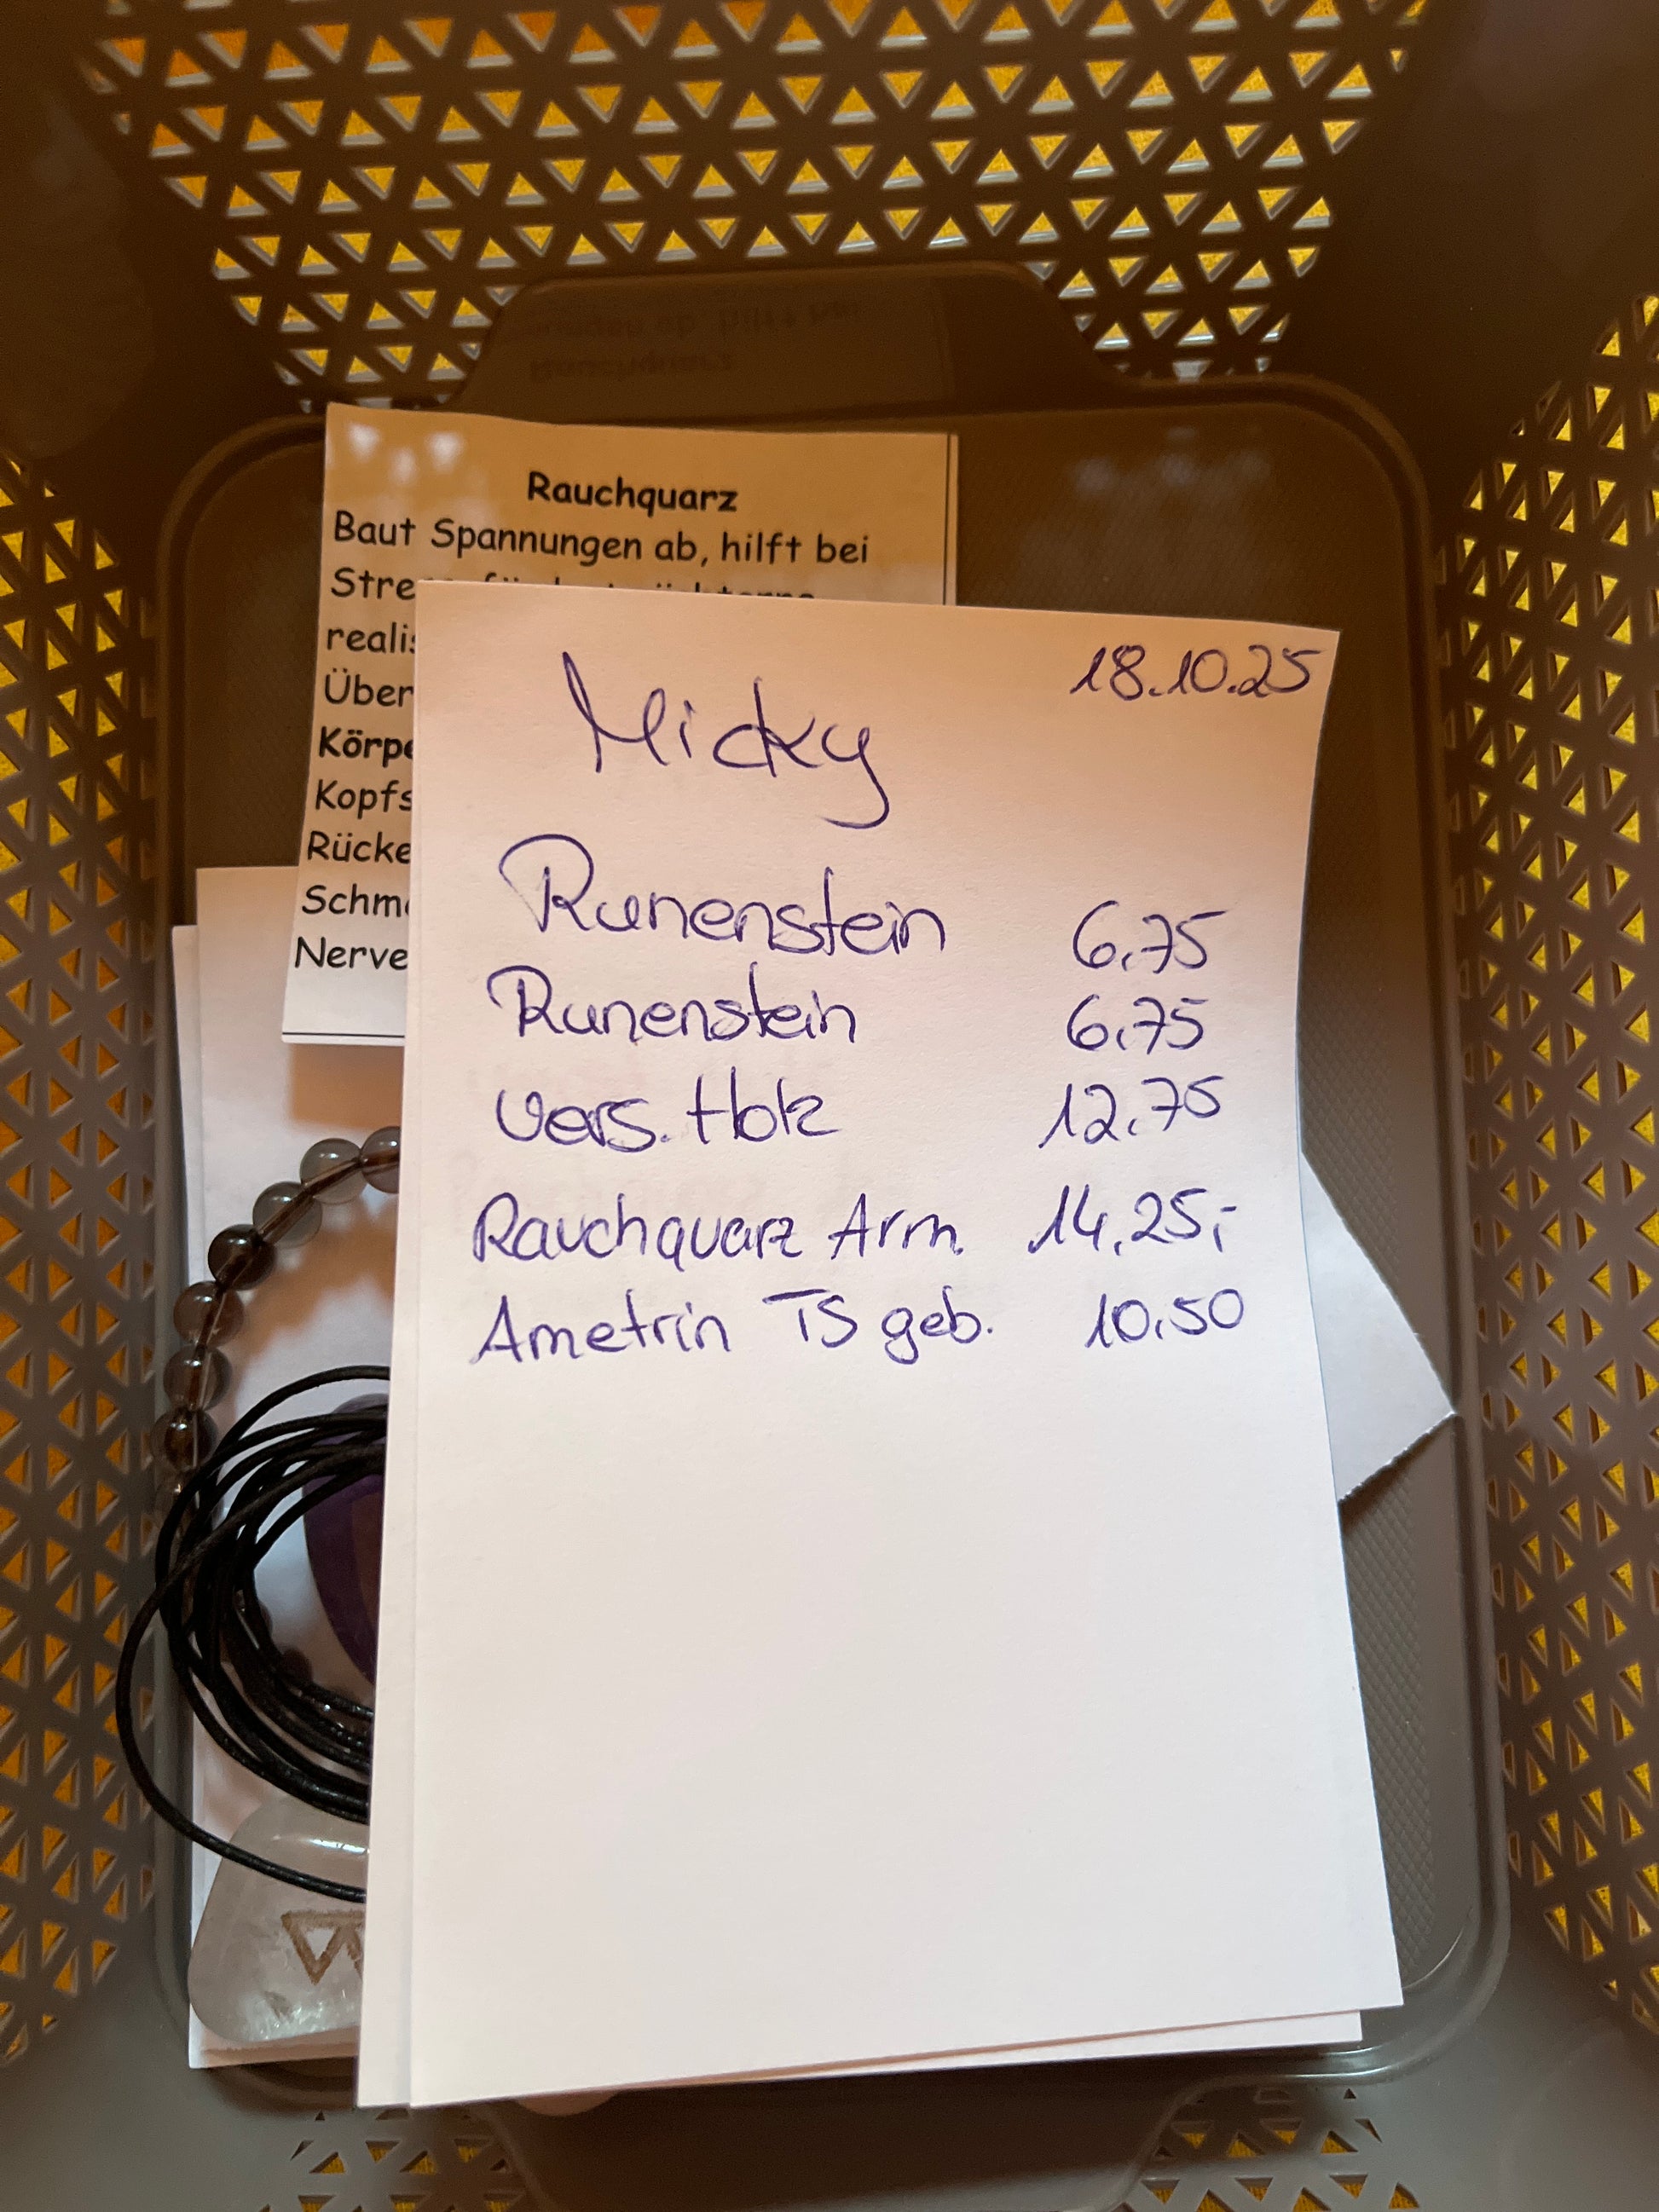 Rauchquarz
Baut Spannungen ab, hilft bei
Stre
realis
Über
Körpe
Kopfs
Rücke
Schm
Nerve
Micky
18.10.25
Runenstein 6,75
Runenstein 6,75
vers. Holz 12,75
Rauchquarz Arm. 14,25,-
Ametrin TS geb. 10,50